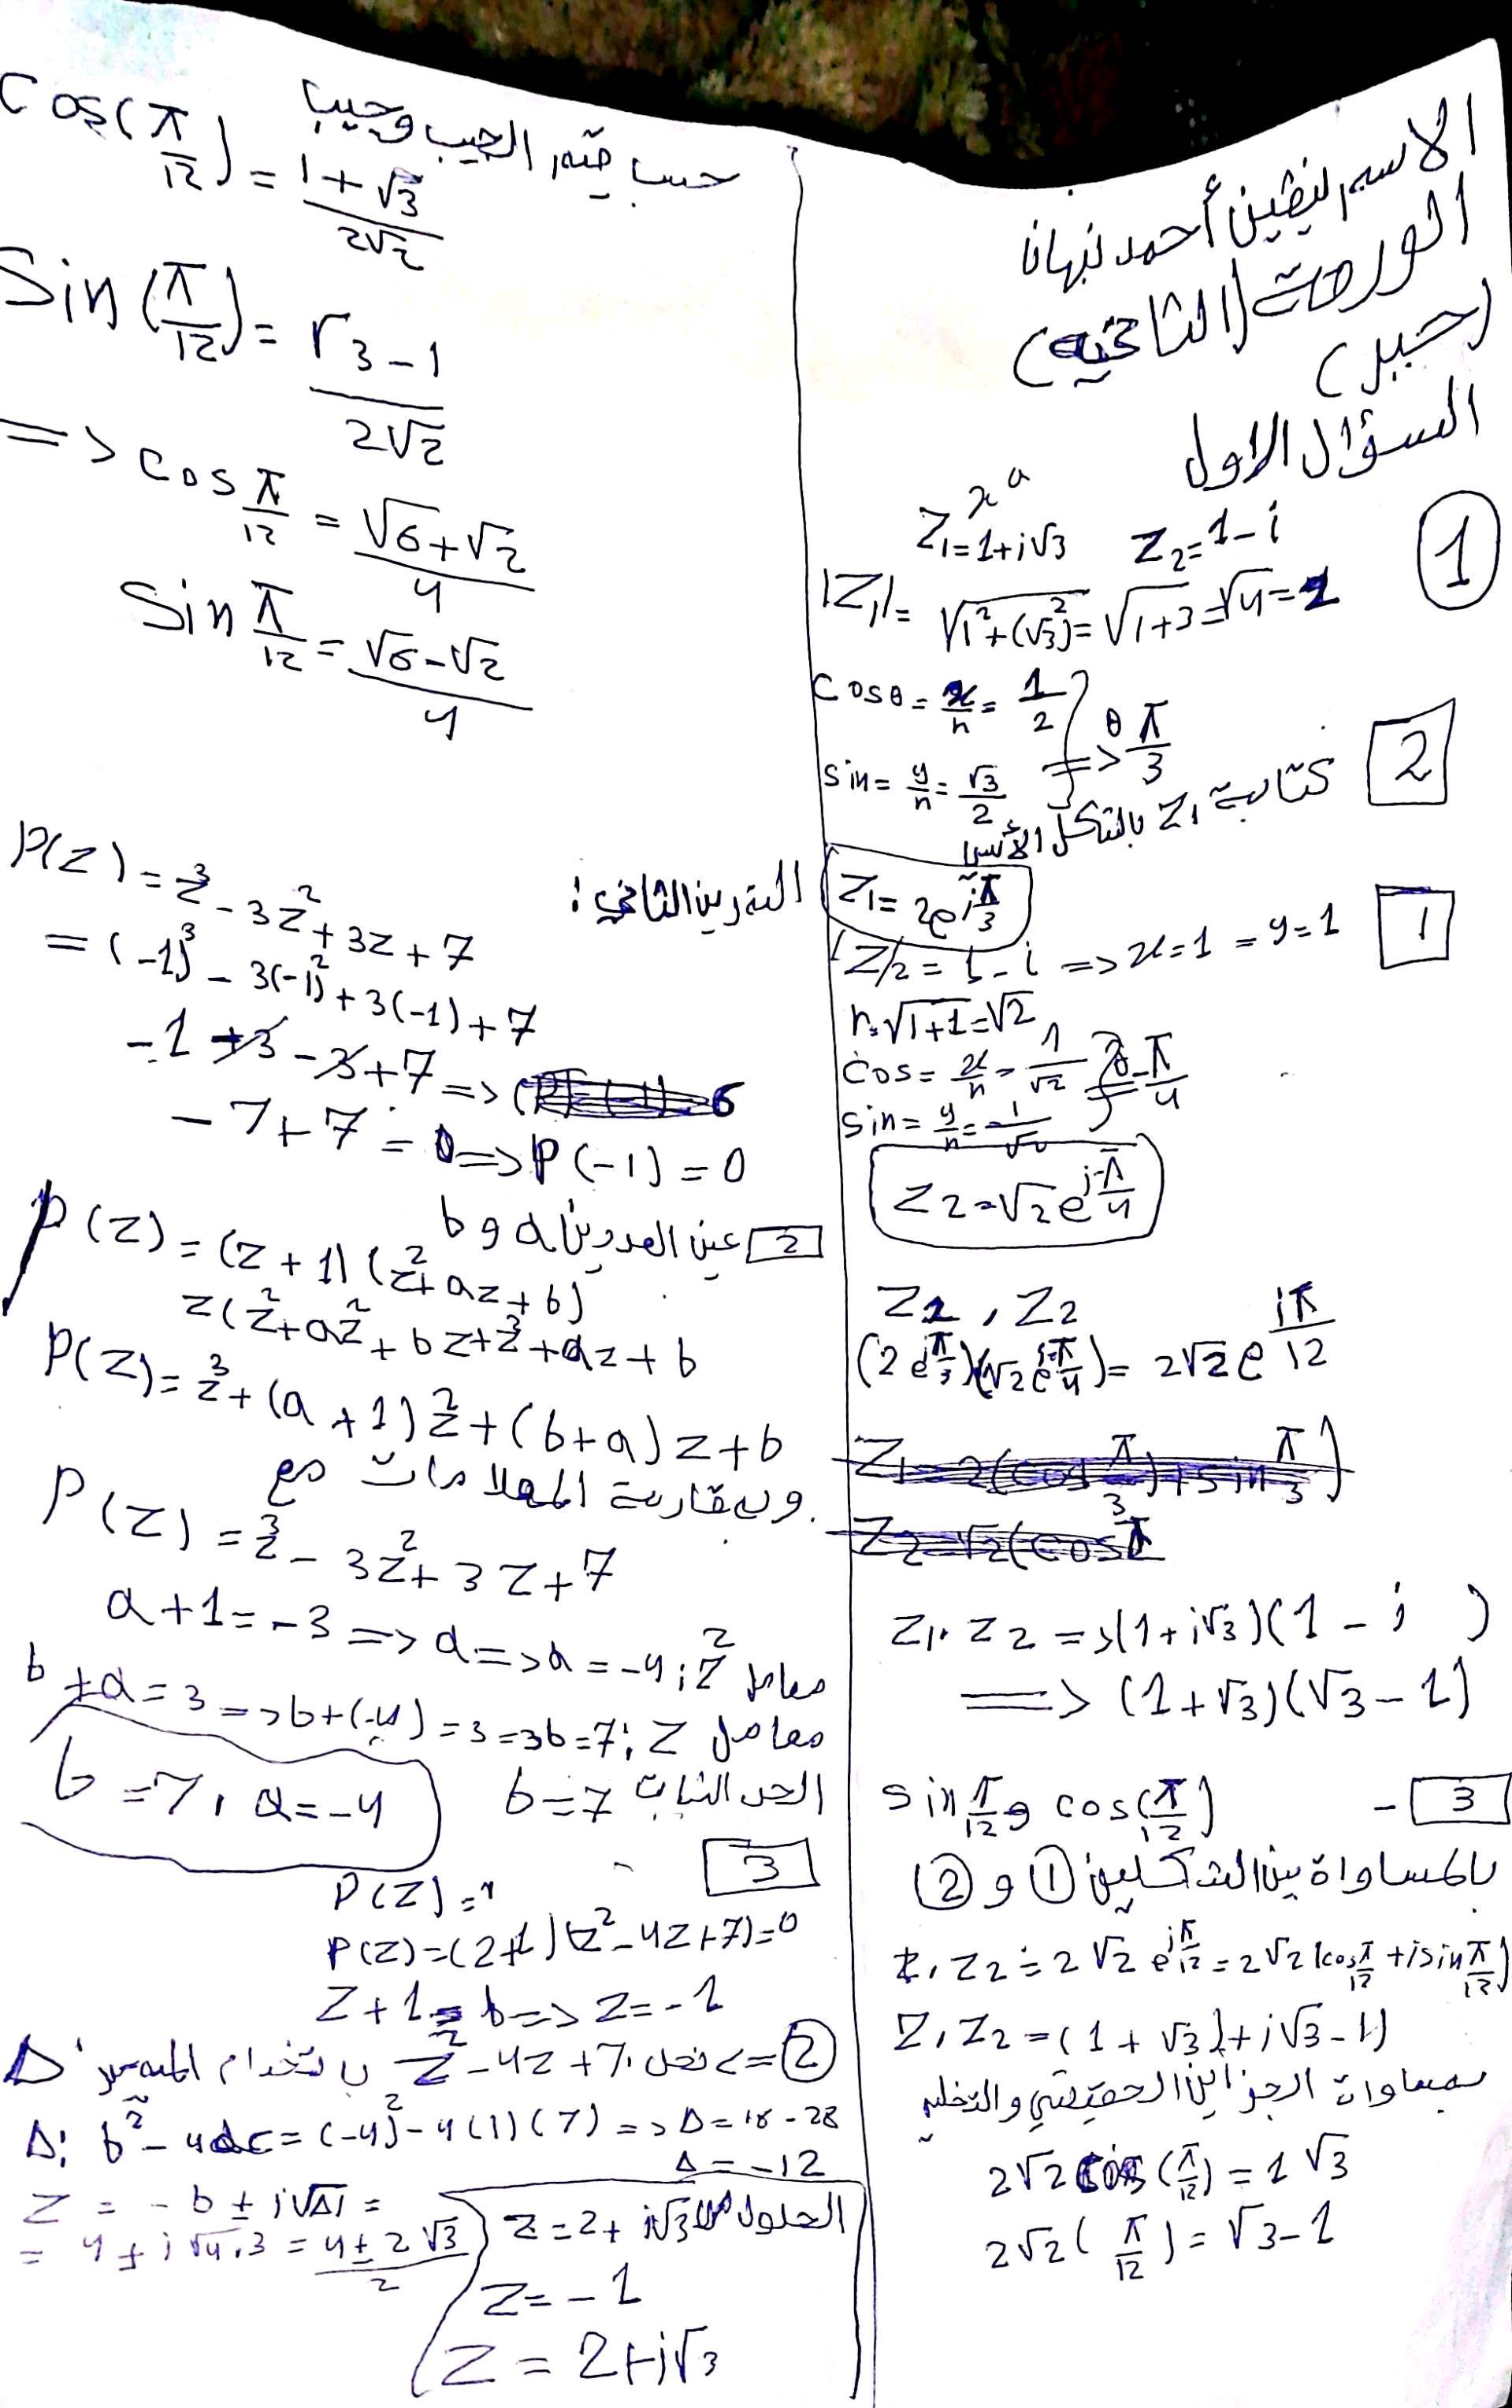 الاسم لينفين أحمد نبهان
الورقة (الثانية)
(جبر)
السؤال الاول
1
Z₁=1+i√3 Z₂=1-i
|Z₁|= √1²+(√3)²= √1+3=√4=2
cosθ = x/n = 1/2
sin = y/n = √3/2 => θ π/3
2 كتابة Z₁ بالشكل الأسي
Z₁= 2e^iπ/3
1 |Z/2 = 1-i => x=1 = y=1
r=√1+1=√2
cos= x/n = 1/√2
sin= y/n = -1/√2 θ-π/4
Z2=√2e^i-π/4
Z1, Z2
(2e^iπ/3)(√2e^i-π/4)= 2√2e^iπ/12
Z1. Z2 =>(1+i√3)(1-i)
=> (1+√3)(√3-1)
3 - sin π/12 و cos(π/12)
بالمساواة بين الشكلين ① و ②
Z₁Z2 = 2√2 e^iπ/12 = 2√2 (cos π/12 + i sin π/12)
Z₁Z2 = (1+√3)+i√3-1)
بمساواة الجزأين الحقيقي والتخيلي
2√2 cos (π/12) = 1 √3
2√2 ( π/12 ) = √3-1
حسب قيم الجيب وجيب
Cos(π/12) = 1+√3/2√2
Sin(π/12) = √3-1/2√2
=> cos π/12 = √6+√2/4
Sin π/12 = √6-√2/4
التمرين الثاني :
P(Z) = z³-3z²+3z+7
= (-1)³-3(-1)²+3(-1)+7
-1 +3-3+7 =>
-7+7 = 0 => P(-1)=0
2 عين العددين a و b
P(Z) = (Z+1)(z²+az+b)
z(z²+az²+bz+z³+az+b
P(Z)= z³+(a+1)z²+(b+a)z+b
وبمقارنة المعلامات مع
P(Z) = z³-3z²+3z+7
a+1=-3 => a=>a=-4 ; Z² معامل
b+a=3 => b+(-4)=3=3b=7 ; Z معامل
الحد الثابت b=7
b=7, a=-4
3
P(Z)=
P(Z)=(2+1)(z²-4z+7)=0
Z+1=b=> Z=-1
② => نحل Z²-4Z+7 باستخدام المميز Δ
Δ: b²-4ac = (-4)²-4(1)(7) => Δ=16-28
Δ=-12
Z = -b ± i√Δ =
= 4±i√4.3 = 4±2√3/2
الحلول Z=2+i√3
Z=-1
Z=2+i√3